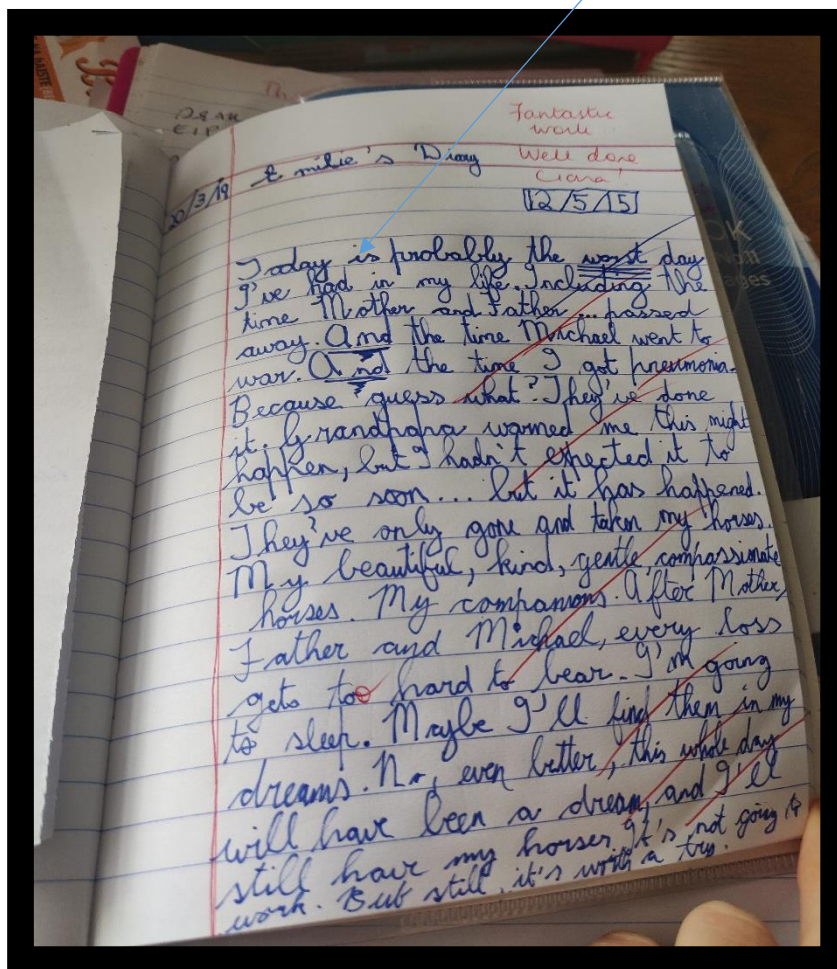 Fantastic
work
Well done
Ciara!
20/3/19 Emilie's Diary
12/5/15
Today is probably the worst day
I've had in my life. Including the
time Mother and Father... passed
away. And the time Michael went to
war. And the time I got pneumonia.
Because guess what? They've done
it. Grandpapa warned me this might
happen, but I hadn't expected it to
be so soon... but it has happened.
They've only gone and taken my horses.
My beautiful, kind, gentle, compassinate
horses. My companions. After Mother,
Father and Michael, every loss
gets too hard to bear. I'm going
to sleep. Maybe I'll find them in my
dreams. No, even better, this whole day
will have been a dream, and I'll
still have my horses. It's not going to
work. But still, it's worth a try.